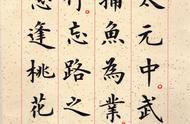 太元中武
捕魚為業
行忘路之
忽逢桃花